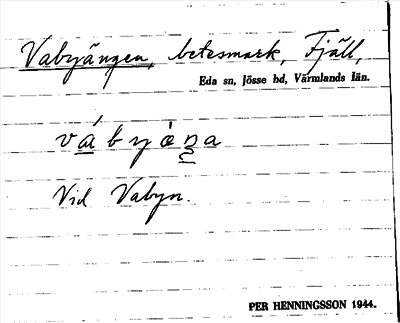 Vabyängen, betesmark, Fjäll,
Eda sn, Jösse hd, Värmlands län.
Vid Vabyn.
PER HENNINGSSON 1944.